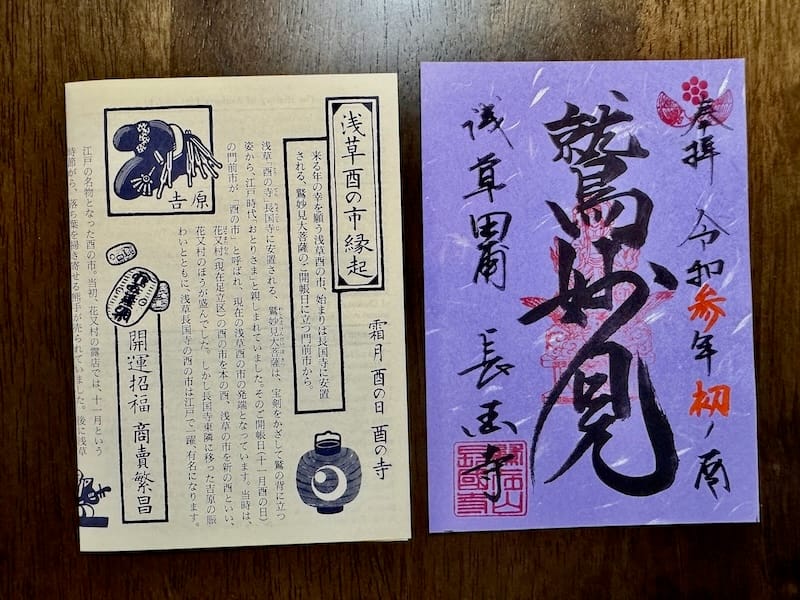 浅草酉の市縁起
来る年の幸を願う浅草酉の市、始まりは長国寺に安置
される、鷲妙見大菩薩のご開帳日に立つ門前市から。
霜月 酉の日 酉の寺
浅草「酉の寺」長国寺に安置される、鷲妙見大菩薩は、宝剣をかざして鷲の背に立つ
姿から、江戸時代、おとりさまと親しまれていました。そのご開帳日(十一月酉の日)
の門前市が、「酉の市」と呼ばれ、現在の浅草酉の市の発端となっています。当時は、
花又村(現在足立区)の酉の市を本の酉、浅草の市を新の酉といい、
花又村のほうが盛んでした。しかし長国寺東隣に移った吉原の賑
わいとともに、浅草長国寺の酉の市は江戸で一躍、有名になります。
吉原
開運招福 商賣繁昌
江戸の名物となった酉の市。当初、花又村の露店では、十一月という
時節がら、落ち葉を掃き寄せる熊手が売られていました。後に浅草
奉拝 令和参年初ノ酉
鷲妙見
浅草田甫 長国寺